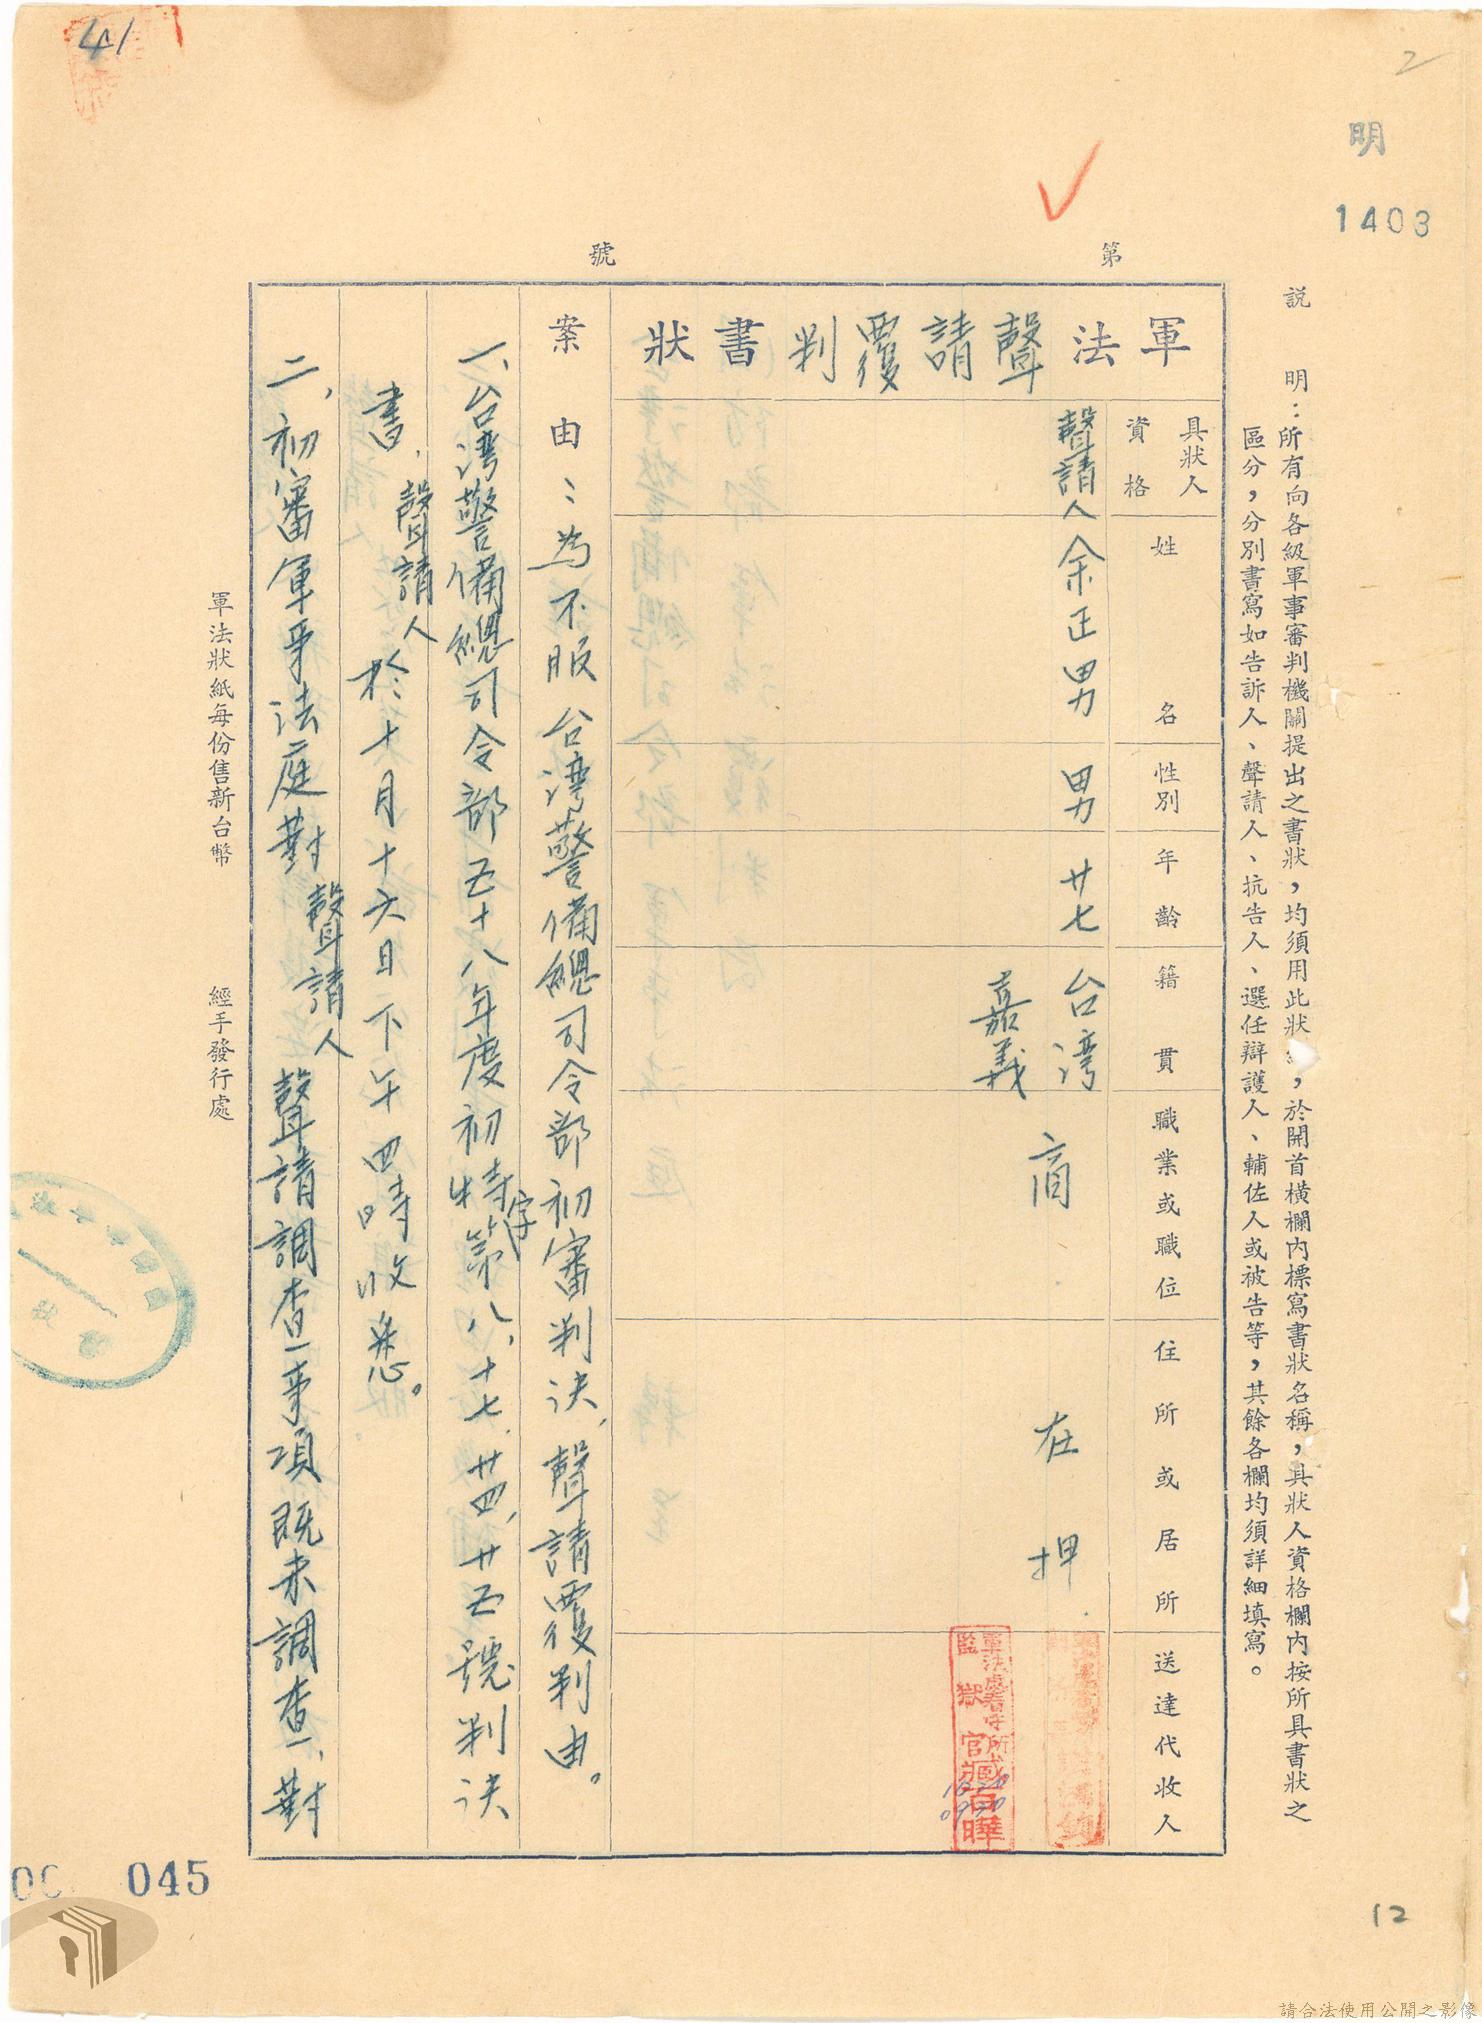 41
2
明
1403
第
號
說明：所有向各級軍事審判機關提出之書狀，均須用此狀，於開首橫欄內標寫書狀名稱，具狀人資格欄內按所具書狀之
區分，分別書寫如告訴人、聲請人、抗告人、選任辯護人、輔佐人或被告等，其餘各欄均須詳細填寫。
軍法聲請覆判書狀
具狀人
資格
姓名
性別
年齡
籍貫
職業或職位
住所或居所
送達代收人
聲請人
余正男
男
廿七
台湾
嘉義
商
在押
軍法處看守所
監獄官臧百曄
1020
0930
案由：為不服台湾警備總司令部初審判決，聲請覆判由。
一、台湾警備總司令部五十八年度初特字第八，十七，廿四，廿五號判決
書，聲請人於十月十六日下午四時收悉。
二，初審軍事法庭對聲請人聲請調查一事項既未調查一，對
軍法狀紙每份售新台幣
經手發行處
045
12
請合法使用公開之影像